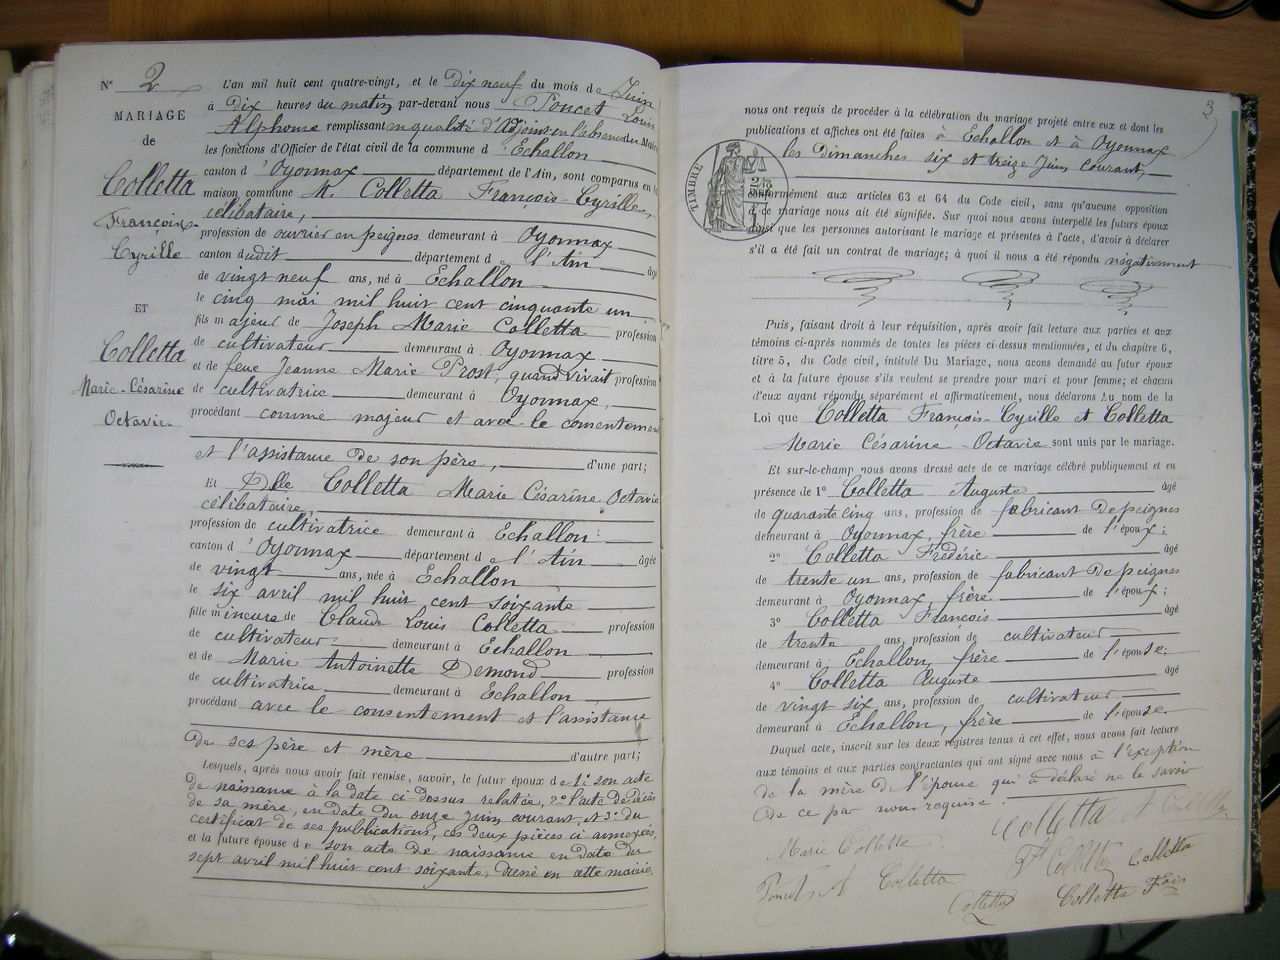 N° 2
MARIAGE
de
Colletta
François-
Cyrille
ET
Colletta
Marie-Césarine
Octavie
L'an mil huit cent quatre-vingt, et le dix neuf du mois de Juin
à dix heures du matin par-devant nous Poncet Louis
Alphonse remplissant en qualité d'Adjoint en l'absence du Maire
les fonctions d'Officier de l'état civil de la commune d'Echallon
canton d'Oyonnax département de l'Ain, sont comparus en la
maison commune M. Colletta François-Cyrille,
célibataire,
profession de ouvrier en peignes demeurant à Oyonnax
canton dudit département de l'Ain âgé
de vingt neuf ans, né à Echallon
le cinq mai mil huit cent cinquante un
fils majeur de Joseph Marie Colletta profession
de cultivateur demeurant à Oyonnax
et de feue Jeanne Marie Prost, quand vivait profession
de cultivatrice demeurant à Oyonnax,
procédant comme majeur et avec le consentement
et l'assistance de son père, d'une part;
Et Dlle Colletta Marie Césarine Octavie
célibataire,
profession de cultivatrice demeurant à Echallon
canton d'Oyonnax département de l'Ain âgée
de vingt ans, née à Echallon
le six avril mil huit cent soixante
fille mineure de Claude Louis Colletta profession
de cultivateur demeurant à Echallon
et de Marie Antoinette Demond profession
de cultivatrice demeurant à Echallon
procédant avec le consentement et l'assistance
de ses père et mère d'autre part;
Lesquels, après nous avoir fait remise, savoir, le futur époux de 1° son acte
de naissance à la date ci-dessus relatée, 2° l'acte de décès
de sa mère, en date du onze juin courant, et 3° du
certificat de ses publications, ces deux pièces ci annexées,
et la future épouse de son acte de naissance en date du
sept avril mil huit cent soixante, dressé en cette mairie,
3
nous ont requis de procéder à la célébration du mariage projeté entre eux et dont les
publications et affiches ont été faites à Echallon et à Oyonnax
les dimanches six et treize Juin courant,
TIMBRE
conformément aux articles 63 et 64 du Code civil, sans qu'aucune opposition
à ce mariage nous ait été signifiée. Sur quoi nous avons interpellé les futurs époux
ainsi que les personnes autorisant le mariage et présentes à l'acte, d'avoir à déclarer
s'il a été fait un contrat de mariage; à quoi il nous a été répondu négativement
Puis, faisant droit à leur réquisition, après avoir fait lecture aux parties et aux
témoins ci-après nommés de toutes les pièces ci-dessus mentionnées, et du chapitre 6,
titre 5, du Code civil, intitulé Du Mariage, nous avons demandé au futur époux
et à la future épouse s'ils veulent se prendre pour mari et pour femme; et chacun
d'eux ayant répondu séparément et affirmativement, nous déclarons au nom de la
Loi que Colletta François-Cyrille et Colletta
Marie Césarine-Octavie sont unis par le mariage.
Et sur-le-champ nous avons dressé acte de ce mariage célébré publiquement et en
présence de 1° Colletta Auguste âgé
de quarante cinq ans, profession de fabricant de peignes
demeurant à Oyonnax, frère de l'époux;
2° Colletta Frédéric âgé
de trente un ans, profession de fabricant de peignes
demeurant à Oyonnax frère de l'époux;
3° Colletta François âgé
de trente ans, profession de cultivateur
demeurant à Echallon, frère de l'épouse;
4° Colletta Auguste âgé
de vingt six ans, profession de cultivateur
demeurant à Echallon, frère de l'épouse.
Duquel acte, inscrit sur les deux registres tenus à cet effet, nous avons fait lecture
aux témoins et aux parties contractantes qui ont signé avec nous à l'exception
de la mère de l'épouse qui a déclaré ne le savoir
de ce par nous requise.
Colletta A
Marie Colletta
Ft Colletta Colletta
Poncet A Colletta
Colletta Colletta Fçois